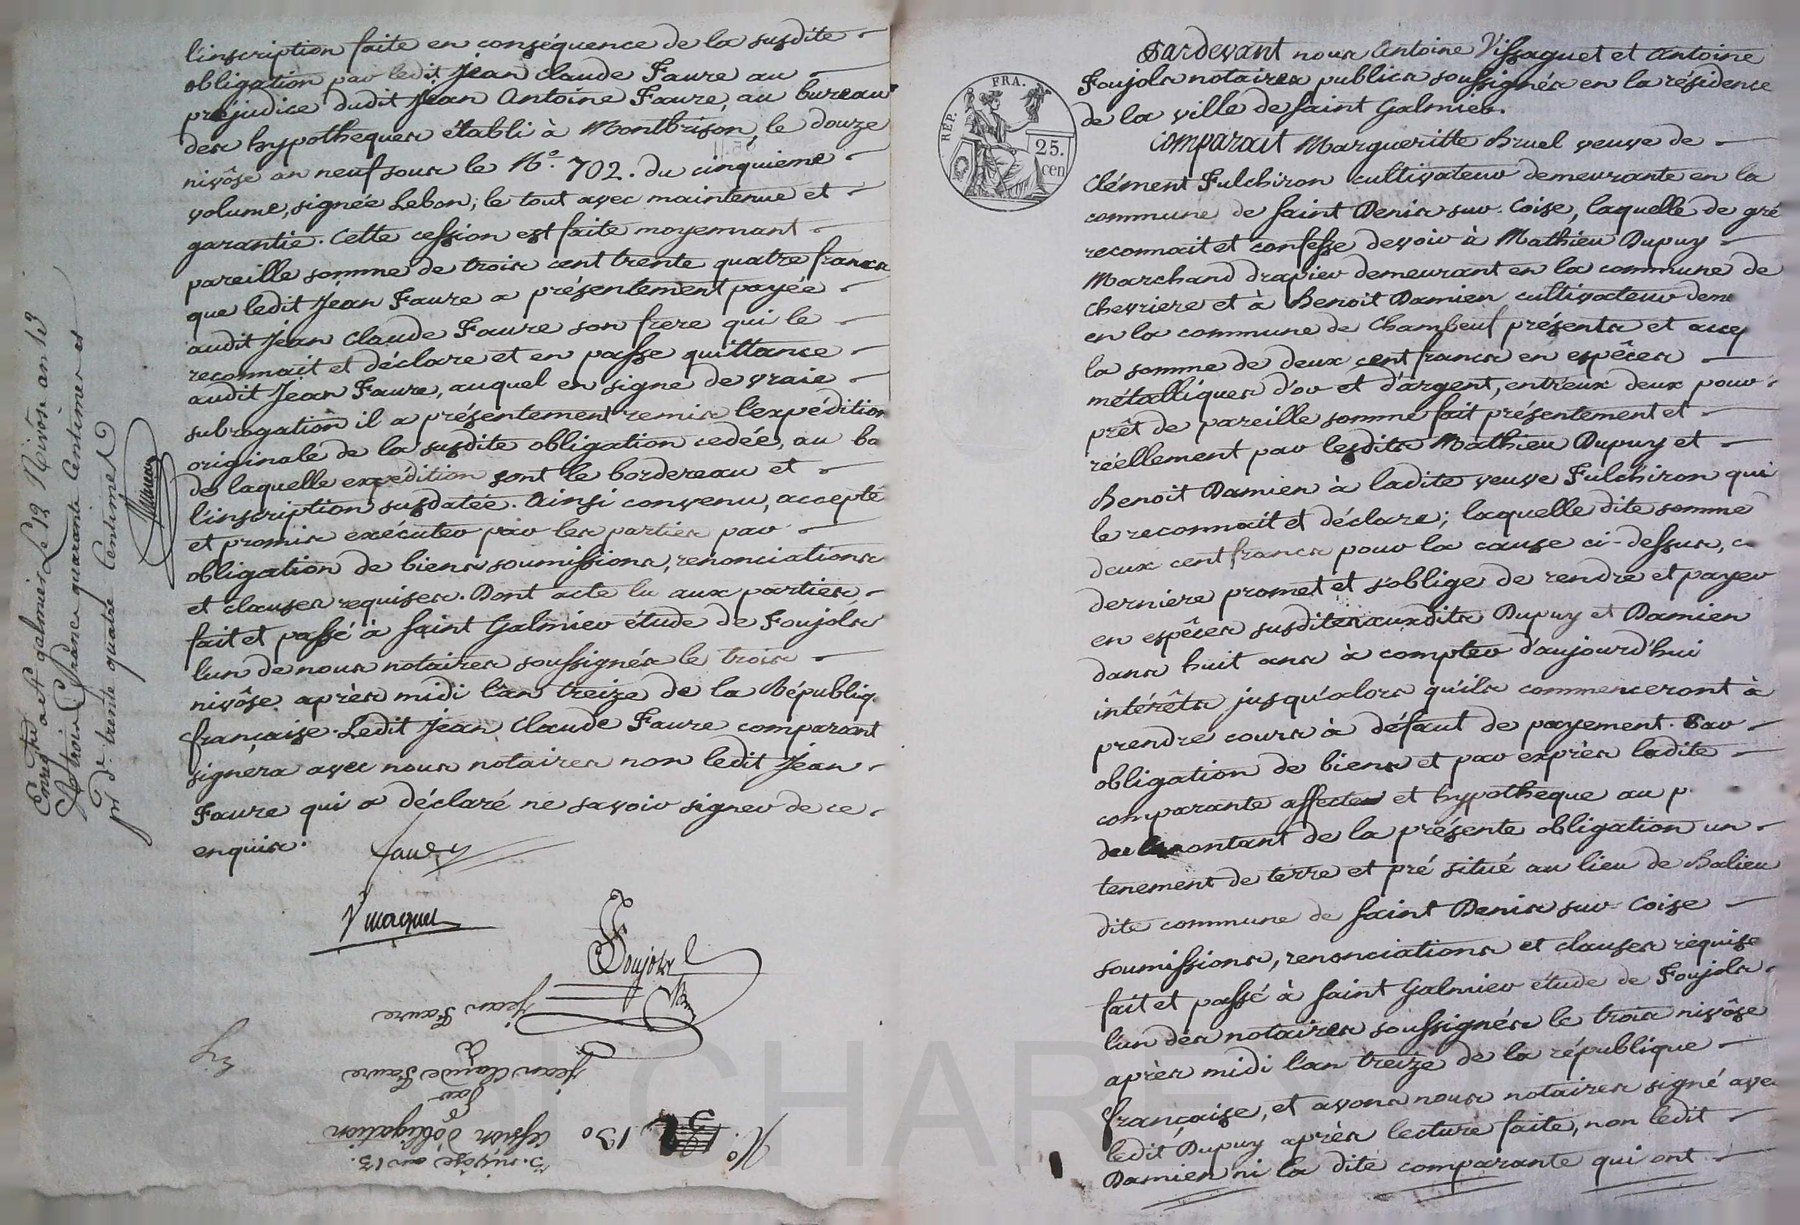 l'inscription faite en conséquence de la susdite
obligation par ledit Jean Claude Faure au
préjudice dudit Jean Antoine Faure, au bureau
des hypotheques établi à Montbrison, le douze
nivôse an neuf sous le N.o 702. du cinquieme
volume, signée Lebon; le tout avec maintenue et
garantie. Cette cession est faite moyennant
pareille somme de trois cent trente quatre francs
que ledit Jean Faure a présentement payée
audit Jean Claude Faure son frere qui le
reconnait et déclare et en passe quittance
audit Jean Faure, auquel en signe de vraie
subrogation il a présentement remis l'expédition
originale de la susdite obligation cedée, au ba
de laquelle expédition sont le bordereau et
l'inscription susdatée. Ainsi convenu, accepté
et promis exécuter par les parties par
obligation de biens soumissions, renonciations
et clauses requises. Dont acte lu aux parties
fait et passé à Saint Galmier étude de Foujols
l'un de nous notaires soussignés le trois
nivôse après midi l'an treize de la Républiq.
française. Ledit Jean Claude Faure comparant
signera avec nous notaires non ledit Jean
Faure qui a déclaré ne savoir signer de ce
enquis.
faure
Foujols
Enreg.tré à St galmier Le 12 Nivôse an 13
trois francs quarante Centimes et
pr. d. trente quatre Centimes
Jean Faure
Jean Claude Faure
par
Cession d'obligation
3. nivôse an 13.
N.o 130
CHAR
Pardevant nous Antoine Vissaguet et Antoine
Foujols notaires publics soussignés en la résidence
de la ville de Saint Galmier.
RÉP. FRA.
25.
cen
Comparait Margueritte Bruel veuve de
Clément Fulchiron cultivateur demeurante en la
commune de Saint Denis sur Coise, laquelle de gré
reconnait et confesse devoir à Mathieu Dupuy
Marchand drapier demeurant en la commune de
chevriere et à Benoit Damien cultivateur deme
en la commune de Chambeuf présents et accep
la somme de deux cent francs en espèces
métalliques d'or et d'argent, entreux deux pour
prêt de pareille somme fait présentement et
réellement par lesdits Mathieu Dupuy et
Benoit Damien à ladite veuve Fulchiron qui
le reconnait et déclare; laquelle dite somme
deux cent francs pour la cause ci-dessus, c
derniere promet et s'oblige de rendre et payer
en espèces susdites auxdits Dupuy et Damien
dans huit ans à compter d'aujourd'hui
intérêts jusqu'alors qu'ils commenceront à
prendre cours à défaut de payement. Par
obligation de biens et par exprès ladite
comparante affecte et hypotheque au p
de montant de la présente obligation un
tenement de terre et pré situé au lieu de Balieu
dite commune de Saint Denis sur Coise
soumissions, renonciations et clauses requise
fait et passé à Saint Galmier étude de Foujols
l'un des notaires soussignés le trois nivôse
après midi l'an treize de la république
française, et avons nous notaires signé avec
ledit Dupuy après lecture faite, non ledit
Damien ni la dite comparante qui ont